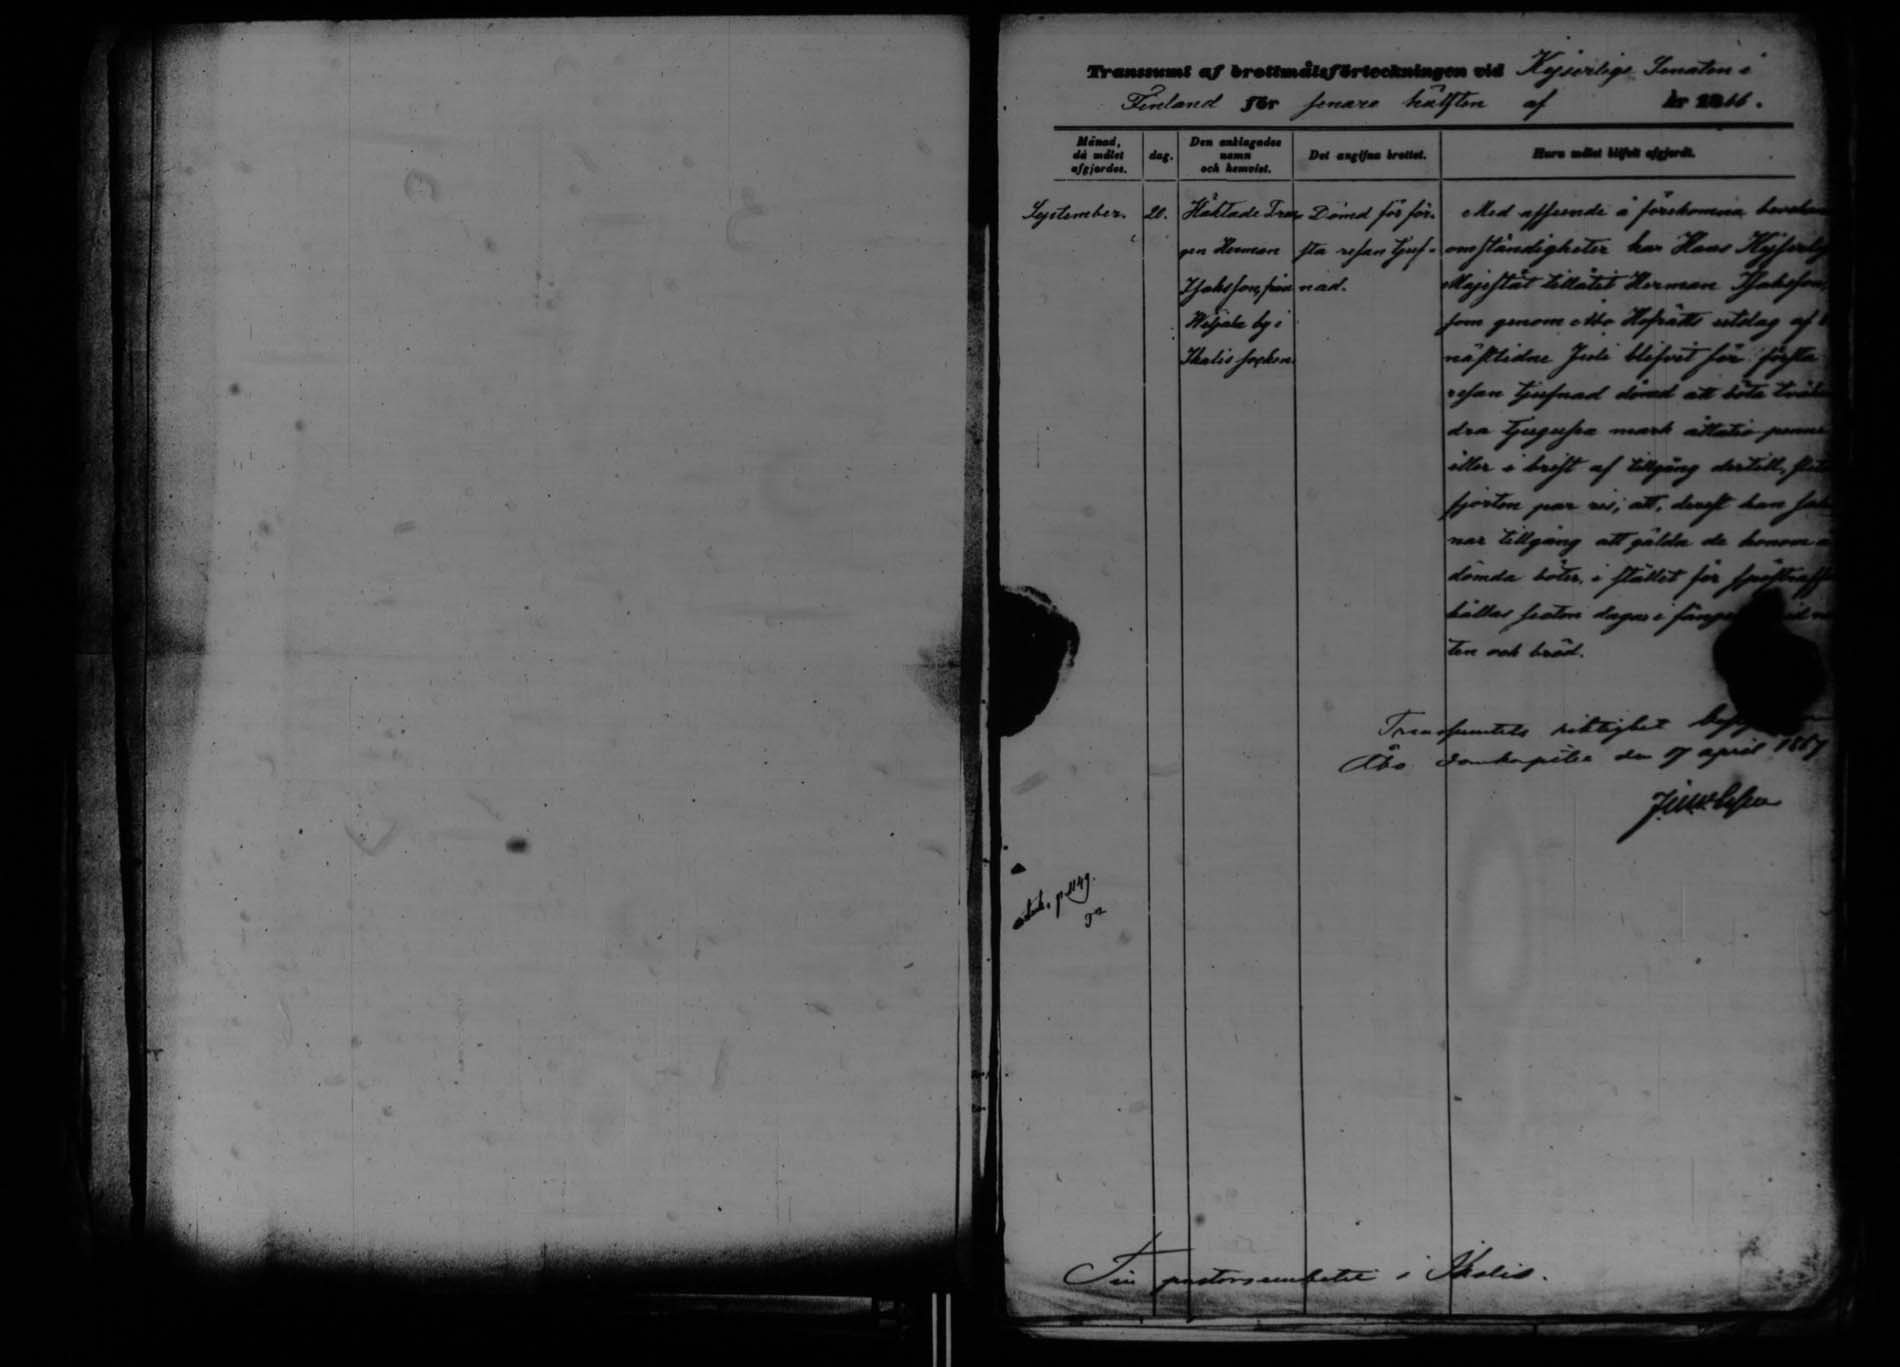 Transsumt af brottmålsförteckningen vid Kejserliga Senaten i
Finland för senare hälften af år 1866.
Månad, då målet afgjordes.
dag.
Den anklagades namn och hemvist.
Det angifna brottet.
Huru målet blifvit afgjordt.
September.
20.
Häktade Dren
gen Herman
Isaksson, från
by i
Ikalis socken.
Dömd för för-
sta resan tjuf-
nad.
Med afseende å förekomna
omständigheter har Hans Kejserlig
Majestät tillåtit Herman Isaksson,
som genom Åbo Hofrätts utslag af
nästlidne Juli blifvit för första
resan tjufnad dömd att böta
dra tjugusex mark åttatio penni
eller i brist af tillgång dertill,
fjorton par ris; att, derest han sak
nar tillgång att gälda de honom
dömda böter, i stället för spöstraff
hållas sexton dagar i
ten och bröd.
Transsumtets riktighet
Åbo domkapitel den 17 april 1867
Till pastorsembetet i Ikalis.